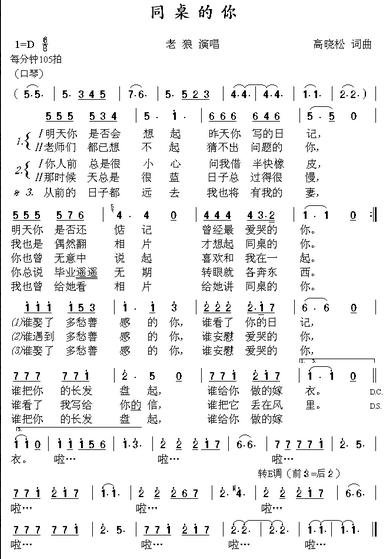 同桌的你
1=D 6/8
老 狼 演唱
高晓松 词曲
每分钟105拍
（口琴）
( 5· 5· | 5· 3 4 5 | 7· 6· | 5· 5 2 3 | 4· 4· | 4· 4· | 1· 1· | 2· 2· )
5 5 5 5 3 4 | 5 5 0 | 5 5 5 7 6 5 | 5· 5 0
1. I 明天你 是否会 想 起 昨天你 写的日 记，
II 老师们 都已想 不 起 猜不出 问题的 你，
2. I 你人前 总是很 小 心 问我借 半块橡 皮，
II 那时候 天总是 很 蓝 日子总 过得很 慢，
3. 从前的 日子都 远 去 我也将 有我的 妻，
5 5 5 5 7 6 | 4· 4 0 | 4 4 4 4 3· 2 | 1· 1 0 :|
明天你 是否还 惦 记 曾经最 爱哭的 你。
我也是 偶然翻 相 片 才想起 同桌的 你。
你也曾 无意中 说 起 喜欢和 我在一 起。
你总说 毕业遥遥 无 期 转眼就 各奔东 西。
我也曾 给她看 相 片 给她讲 同桌的 你。
1 1 1 1 5 3 | 1 1 1 1 5 3 | 2 2 2 2· 1 7 | 6· 6·
(1)谁娶了 多愁善 感的你， 谁看了 你的日 记，
(2)谁遇到 多愁善 感的你， 谁安慰 爱哭的 你，
(3)谁娶了 多愁善 感的你， 谁安慰 爱哭的 你，
7 7 7 7 6 5 | 4· 5 0 | 7 7 7 2 1 7 | 1· 1 0
谁把你 的长发 盘 起， 谁给你 做的嫁 衣。 D.C.
谁看了 我写给 你的信， 谁把它 丢在风 里。 D.S.
谁把你 的长发 盘 起， 谁给你 做的嫁
1 1 0 | 1 1 1 5 6 | 1· 3· | 2 2 2 2 1 7 | 6· 6· | 7 7 1 2 1 7 | 2· 5·
衣。 啦… 啦…
转E调（前3=后2）
啦…
啦…